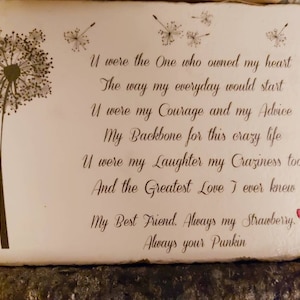 U were the One who owned my heart
The way my everyday would start
U were my Courage and my Advice
My Backbone for this crazy life
U were my Laughter my Craziness too
And the Greatest Love I ever knew
My Best Friend. Always my Strawberry.
Always your Punkin